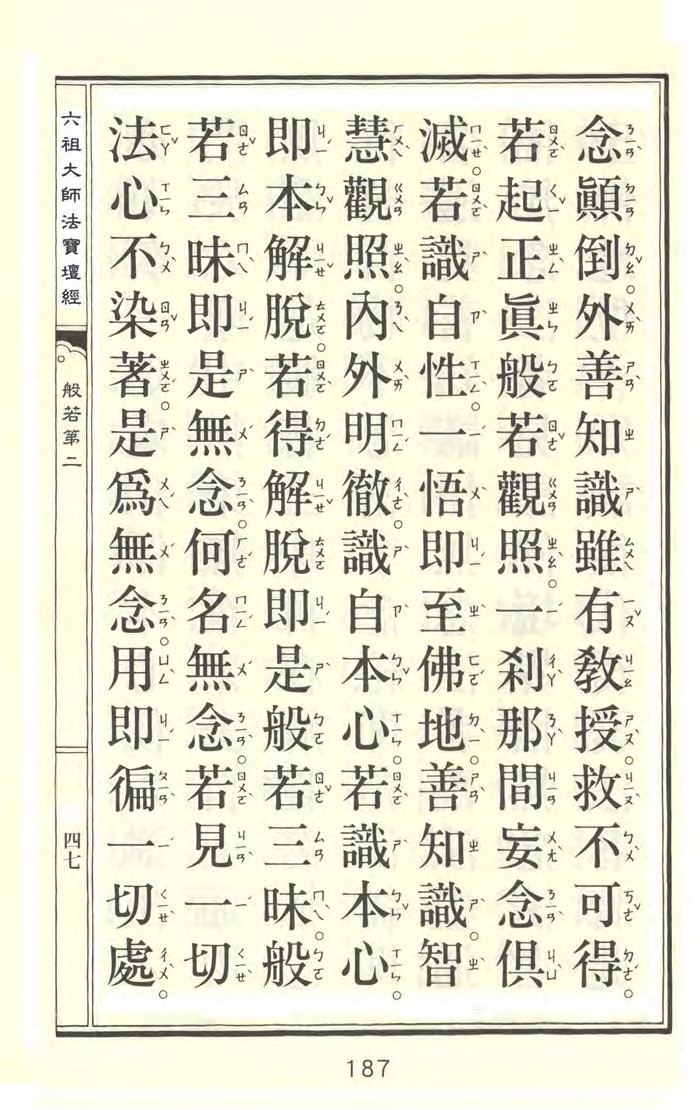 念顚倒。外善知識雖有敎授。救不可得。
若起正眞般若觀照。一刹那間妄念俱
滅。若識自性。一悟即至佛地。善知識。智
慧觀照。內外明徹。識自本心。若識本心。
即本解脫。若得解脫即是般若三昧。般
若三昧即是無念。何名無念。若見一切
法心不染著。是爲無念。用即徧一切處。
六祖大師法寶壇經
般若第二
四七
187